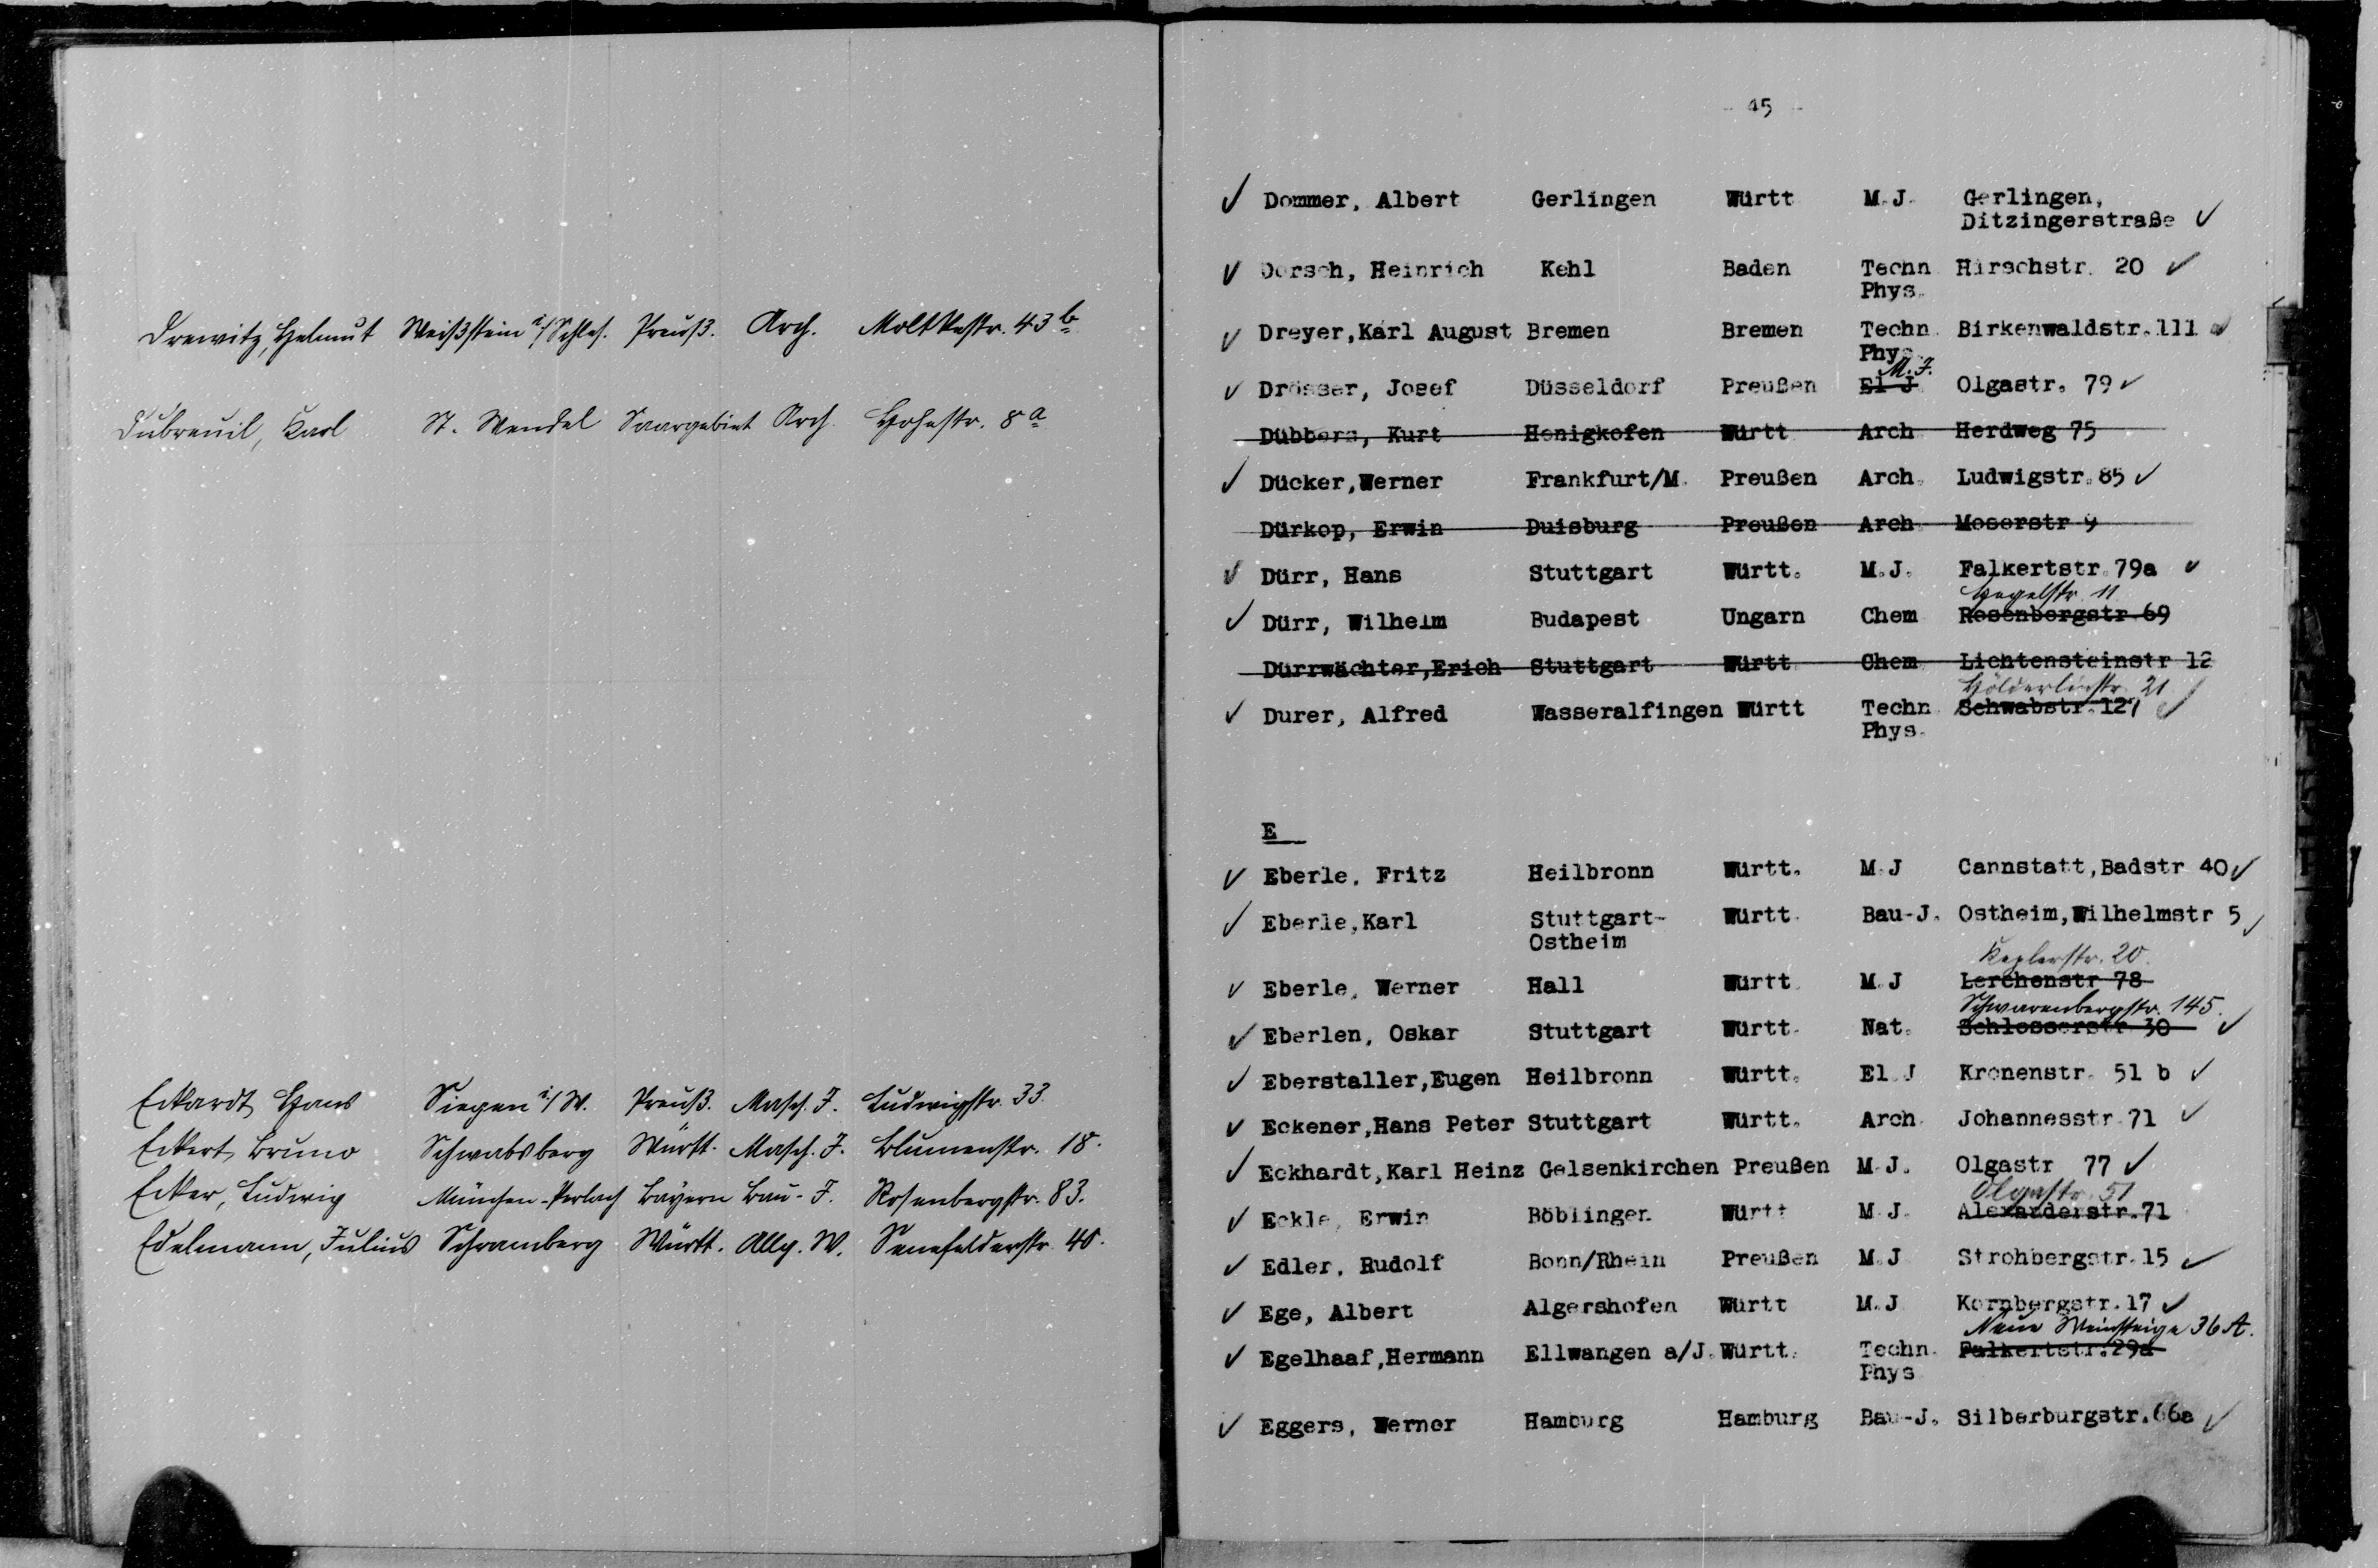 Drewitz, Helmut Weißstein i/Schles. Preuß. Arch. Moltkestr. 43 b
Dubreuil, Karl St. Wendel Saargebiet Arch. Hohestr. 8 a
Eckardt, Hans Siegen i/W. Preuß. Masch. J. Ludwigstr. 33
Eckert, Bruno Schwabsberg Württ. Masch. J. Blumenstr. 18.
Ecker, Ludwig München-Perlach Bayern Bau-J. Rosenbergstr. 83.
Edelmann, Julius Schramberg Württ. Allg. W. Senefelderstr. 40.
- 45 -
Dommer, Albert Gerlingen Württ M.J. Gerlingen,
Ditzingerstraße
Dorsch, Heinrich Kehl Baden Techn Hirschstr. 20
Phys.
Dreyer,Karl August Bremen Bremen Techn. Birkenwaldstr.111
Phys.
M.J.
Drösser, Josef Düsseldorf Preußen El J Olgastr. 79
Dübbers, Kurt Honigkofen Württ Arch Herdweg 75
Dücker,Werner Frankfurt/M. Preußen Arch. Ludwigstr.85
Dürkop, Erwin Duisburg Preußen Arch Moserstr 9
Dürr, Hans Stuttgart Württ. M.J. Falkertstr.79a
Hegelstr. 11.
Dürr, Wilhelm Budapest Ungarn Chem Rosenbergstr.69
Dürrwächter,Erich Stuttgart Württ Chem Lichtensteinstr 12
Hölderlinstr. 21
Durer, Alfred Wasseralfingen Württ Techn Schwabstr.127
Phys.
E
Eberle, Fritz Heilbronn Württ. M.J Cannstatt,Badstr 40
Eberle,Karl Stuttgart- Württ. Bau-J. Ostheim,Wilhelmstr 5
Ostheim
Keplerstr. 20.
Eberle, Werner Hall Württ M.J Lerchenstr 78
Schwarenbergstr. 145.
Eberlen, Oskar Stuttgart Württ. Nat. Schlosserstr 30
Eberstaller,Eugen Heilbronn Württ. El.J Kronenstr. 51 b
Eckener,Hans Peter Stuttgart Württ. Arch. Johannesstr.71
Eckhardt,Karl Heinz Gelsenkirchen Preußen M.J. Olgastr 77
Olgastr. 51
Eckle, Erwin Böblingen Württ M.J. Alexanderstr.71
Edler, Rudolf Bonn/Rhein Preußen M.J Strohbergstr.15
Ege, Albert Algershofen Württ M.J Kornbergstr.17
Neue Weinsteige 36 A.
Egelhaaf,Hermann Ellwangen a/J.Württ. Techn. Falkertstr.29a
Phys
Eggers, Werner Hamburg Hamburg Bau-J. Silberburgstr.66a